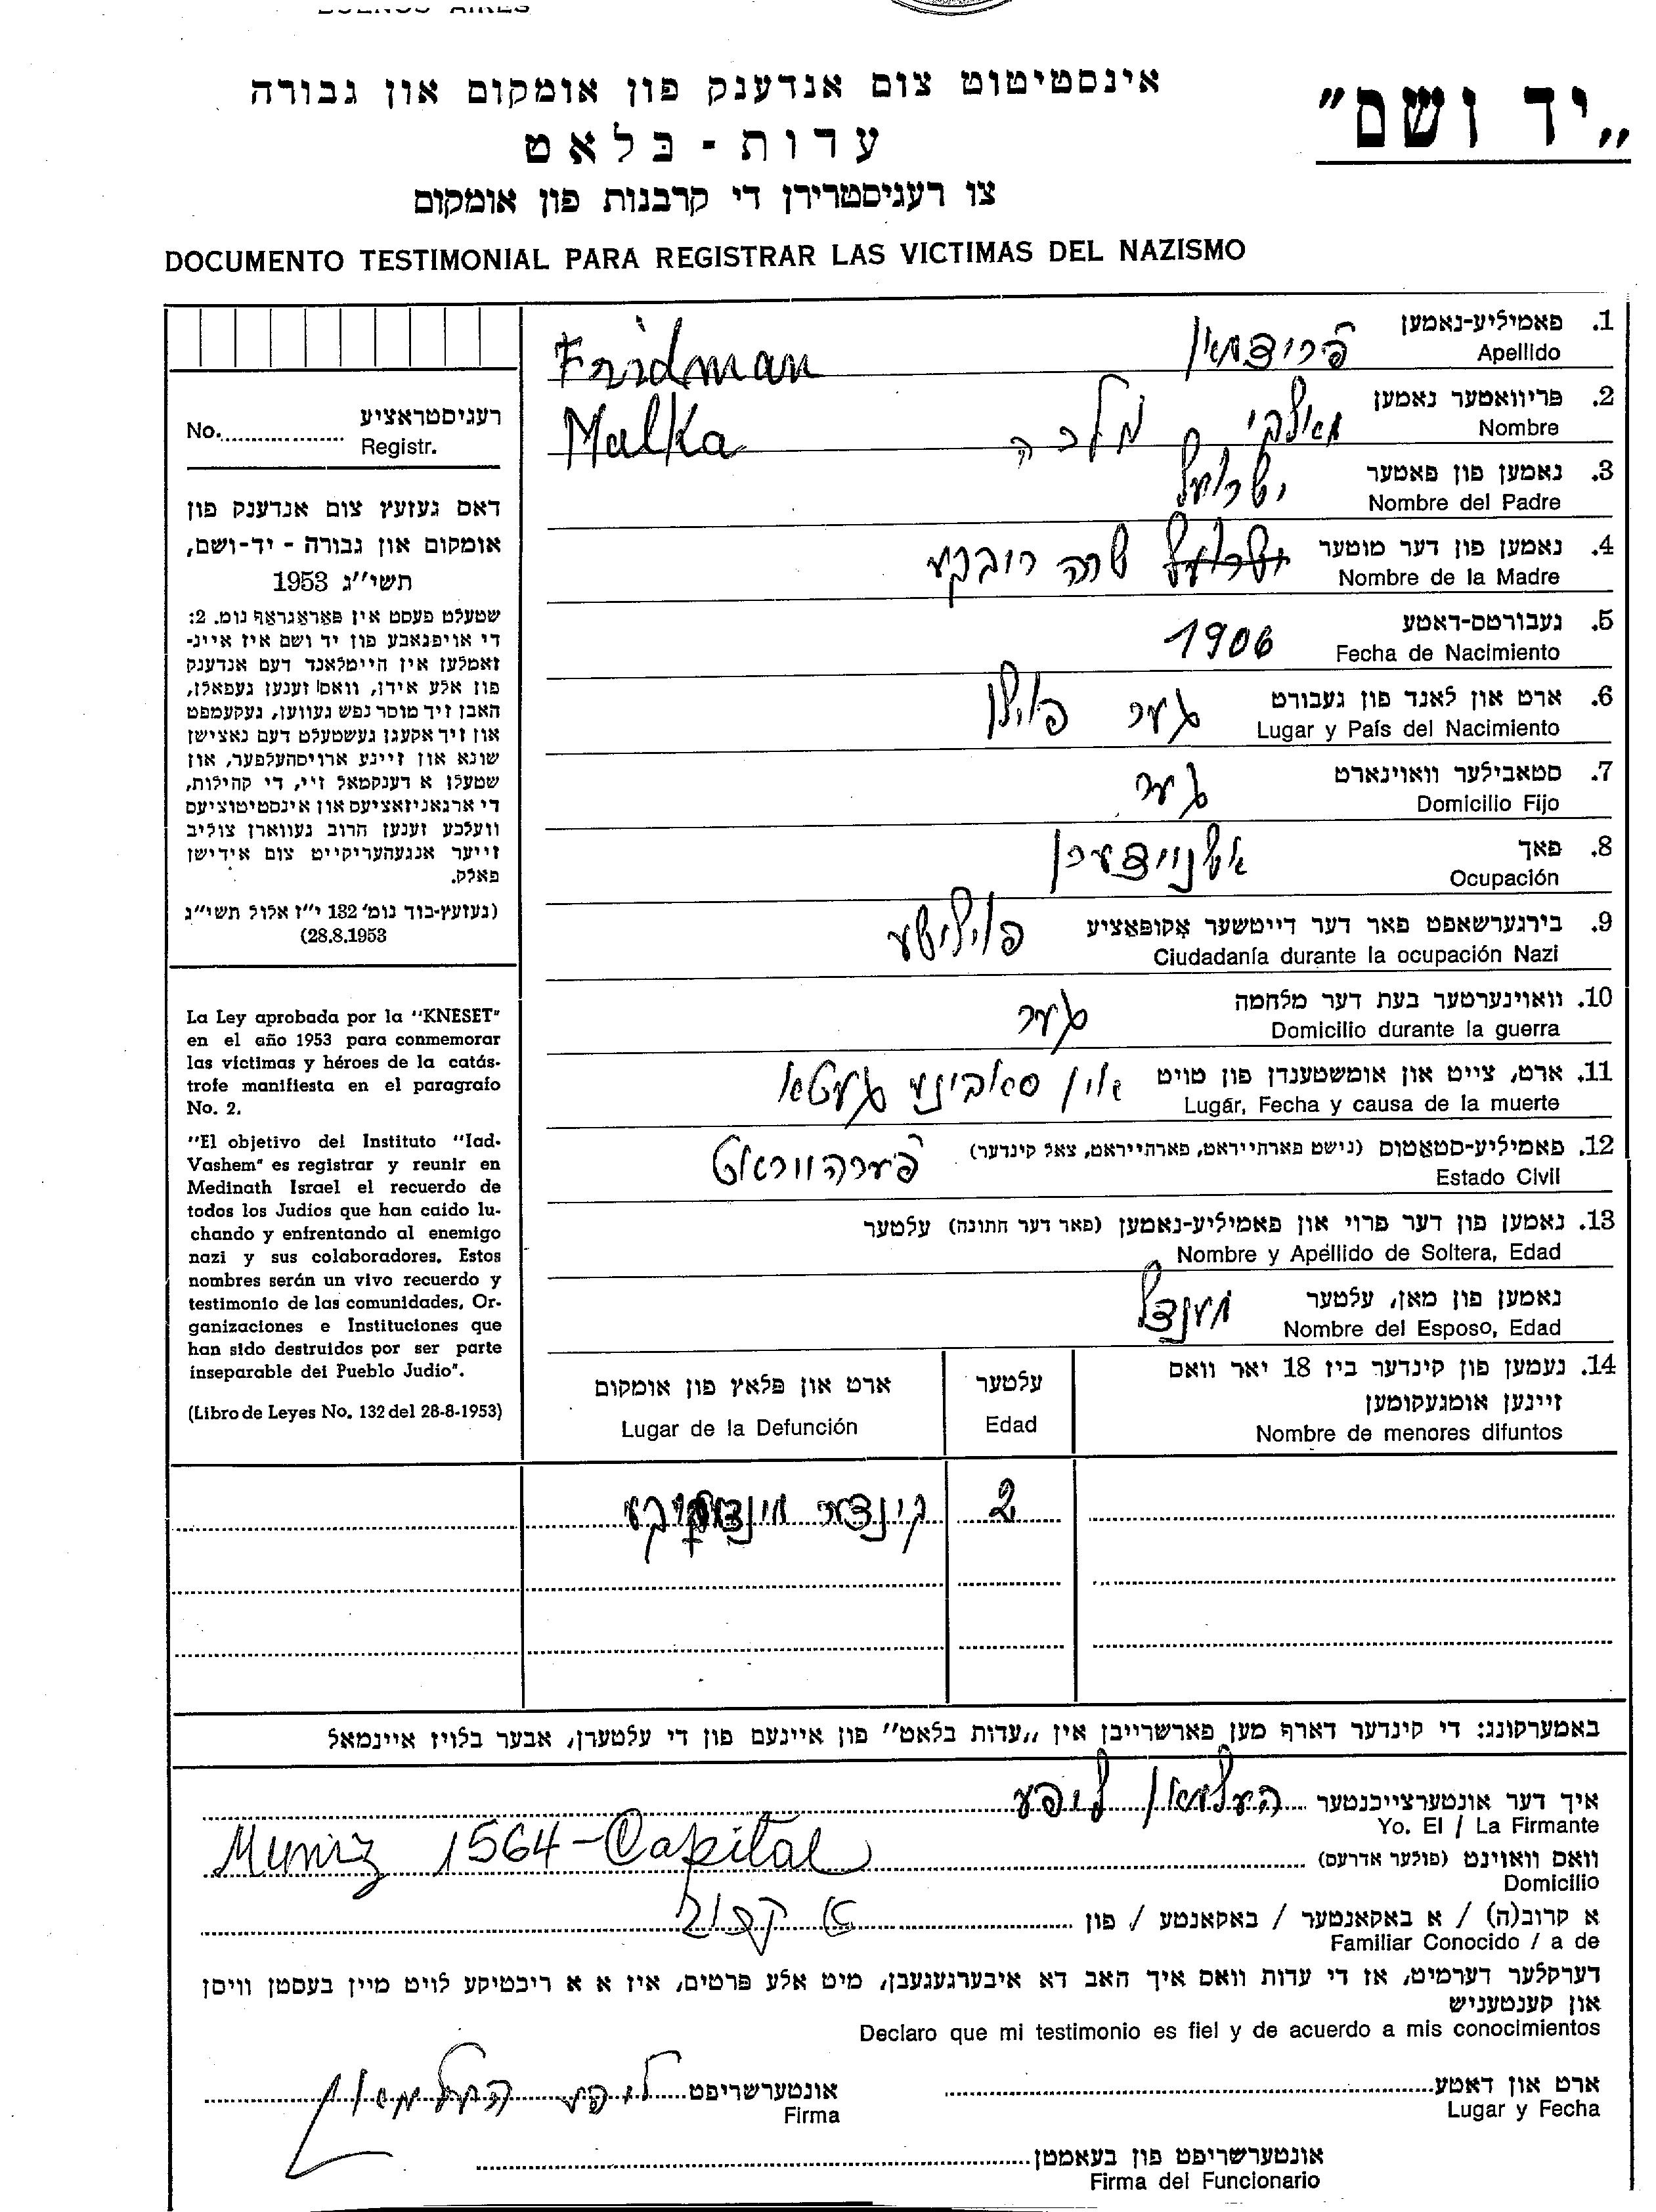 BUENOS AIRES
„יד ושם"
אינסטיטוט צום אנדענק פון אומקום און גבורה
עדות - בלאט
צו רעגיסטרירן די קרבנות פון אומקום
DOCUMENTO TESTIMONIAL PARA REGISTRAR LAS VICTIMAS DEL NAZISMO
רעגיסטראציע
No. Registr.
דאס געזעץ צום אנדענק פון
אומקום און גבורה - יד-ושם,
תשי״ג 1953
שטעלט פעסט אין פאראגראף נומ. 2:
די אויפגאבע פון יד ושם איז איינ-
זאמלען אין היימלאנד דעם אנדענק
פון אלע אידן, וואס זענען געפאלן,
האבן זיך מוסר נפש געווען, געקעמפט
און זיך אקעגן געשטעלט דעם נאצישן
שונא און זיינע ארויסהעלפער, און
שטעלן א דענקמאל זיי, די קהילות,
די ארגאניזאציעס און אינסטיטוציעס
וועלכע זענען חרוב געווארן צוליב
זייער אנגעהעריקייט צום אידישן
פאלק.
(געזעץ-בוך נומ׳ 132 י״ז אלול תשי״ג
28.8.1953)
La Ley aprobada por la "KNESET"
en el año 1953 para conmemorar
las víctimas y héroes de la catás-
trofe manifiesta en el paragrafo
No. 2.
"El objetivo del Instituto "Iad-
Vashem" es registrar y reunir en
Medinath Israel el recuerdo de
todos los Judíos que han caido lu-
chando y enfrentando al enemigo
nazi y sus colaboradores. Estos
nombres serán un vivo recuerdo y
testimonio de las comunidades, Or-
ganizaciones e Instituciones que
han sido destruídos por ser parte
inseparable del Pueblo Judio".
(Libro de Leyes No. 132 del 28-8-1953)
1. פאמיליע-נאמען פרידמאן Fridman
Apellido
2. פריוואטער נאמען מאלקי מלכה Malka
Nombre
3. נאמען פון פאטער ישראל
Nombre del Padre
4. נאמען פון דער מוטער שרה
Nombre de la Madre
5. געבורטס-דאטע 1906
Fecha de Nacimiento
6. ארט און לאנד פון געבורט גער פוילן
Lugar y País del Nacimiento
7. סטאבילער וואוינארט גער
Domicilio Fijo
8. פאך
Ocupación
9. בירגערשאפט פאר דער דייטשער אקופאציע פוילישע
Ciudadanía durante la ocupación Nazi
10. וואוינערטער בעת דער מלחמה גער
Domicilio durante la guerra
11. ארט, צייט און אומשטענדן פון טויט אין געטא
Lugár, Fecha y causa de la muerte
12. פאמיליע-סטאטוס (נישט פארהייראט, פארהייראט, צאל קינדער)
Estado Civil
13. נאמען פון דער פרוי און פאמיליע-נאמען (פאר דער חתונה) עלטער
Nombre y Apéllido de Soltera, Edad
נאמען פון מאן, עלטער מענדל
Nombre del Esposo, Edad
14. נעמען פון קינדער ביז 18 יאר וואס
זיינען אומגעקומען
Nombre de menores difuntos
עלטער
Edad
ארט און פלאץ פון אומקום
Lugar de la Defunción
2 קינדער
באמערקונג: די קינדער דארף מען פארשרייבן אין „עדות בלאט" פון איינעם פון די עלטערן, אבער בלויז איינמאל
איך דער אונטערצייכנטער העלמאן ליפע
Yo. El / La Firmante
וואס וואוינט (פולער אדרעס) Muniz 1564-Capital
Domicilio
א קרוב(ה) / א באקאנטער / באקאנטע / פון א קרוב
Familiar Conocido / a de
דערקלער דערמיט, אז די עדות וואס איך האב דא איבערגעגעבן, מיט אלע פרטים, איז א א ריכטיקע לויט מיין בעסטן וויסן
און קענטעניש
Declaro que mi testimonio es fiel y de acuerdo a mis conocimientos
ארט און דאטע
Lugar y Fecha
אונטערשריפט ליפע העלמאן
Firma
אונטערשריפט פון בעאמטן
Firma del Funcionario